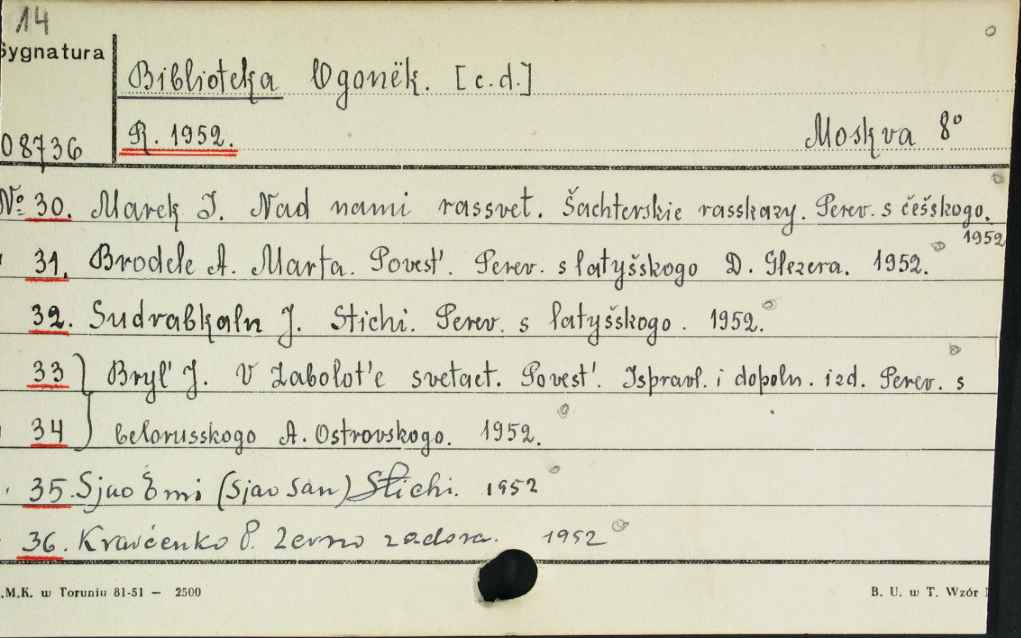 14
Sygnatura
Biblioteka Ogonëk. [c.d.]
08736
R. 1952.
Moskva 8°
№ 30. Marek J. Nad nami rassvet. Šachterskie rasskazy. Perev. s češskogo. 1952
31. Brodele A. Marta. Povest'. Perev. s latyšskogo D. Glezera. 1952.
32. Sudrabkaln J. Stichi. Perev. s latyšskogo. 1952.
33 Bryl' J. V Zabolot'e svetaet. Povest'. Ispravl. i dopoln. izd. Perev. s
34 belorusskogo A. Ostrovskogo. 1952.
35. Sjao Èmi (Sjao San) Stichi. 1952
36. Kravčenko P. Zerno zadora. 1952
.M.K. w Toruniu 81-51 — 2500
B. U. w T. Wzór